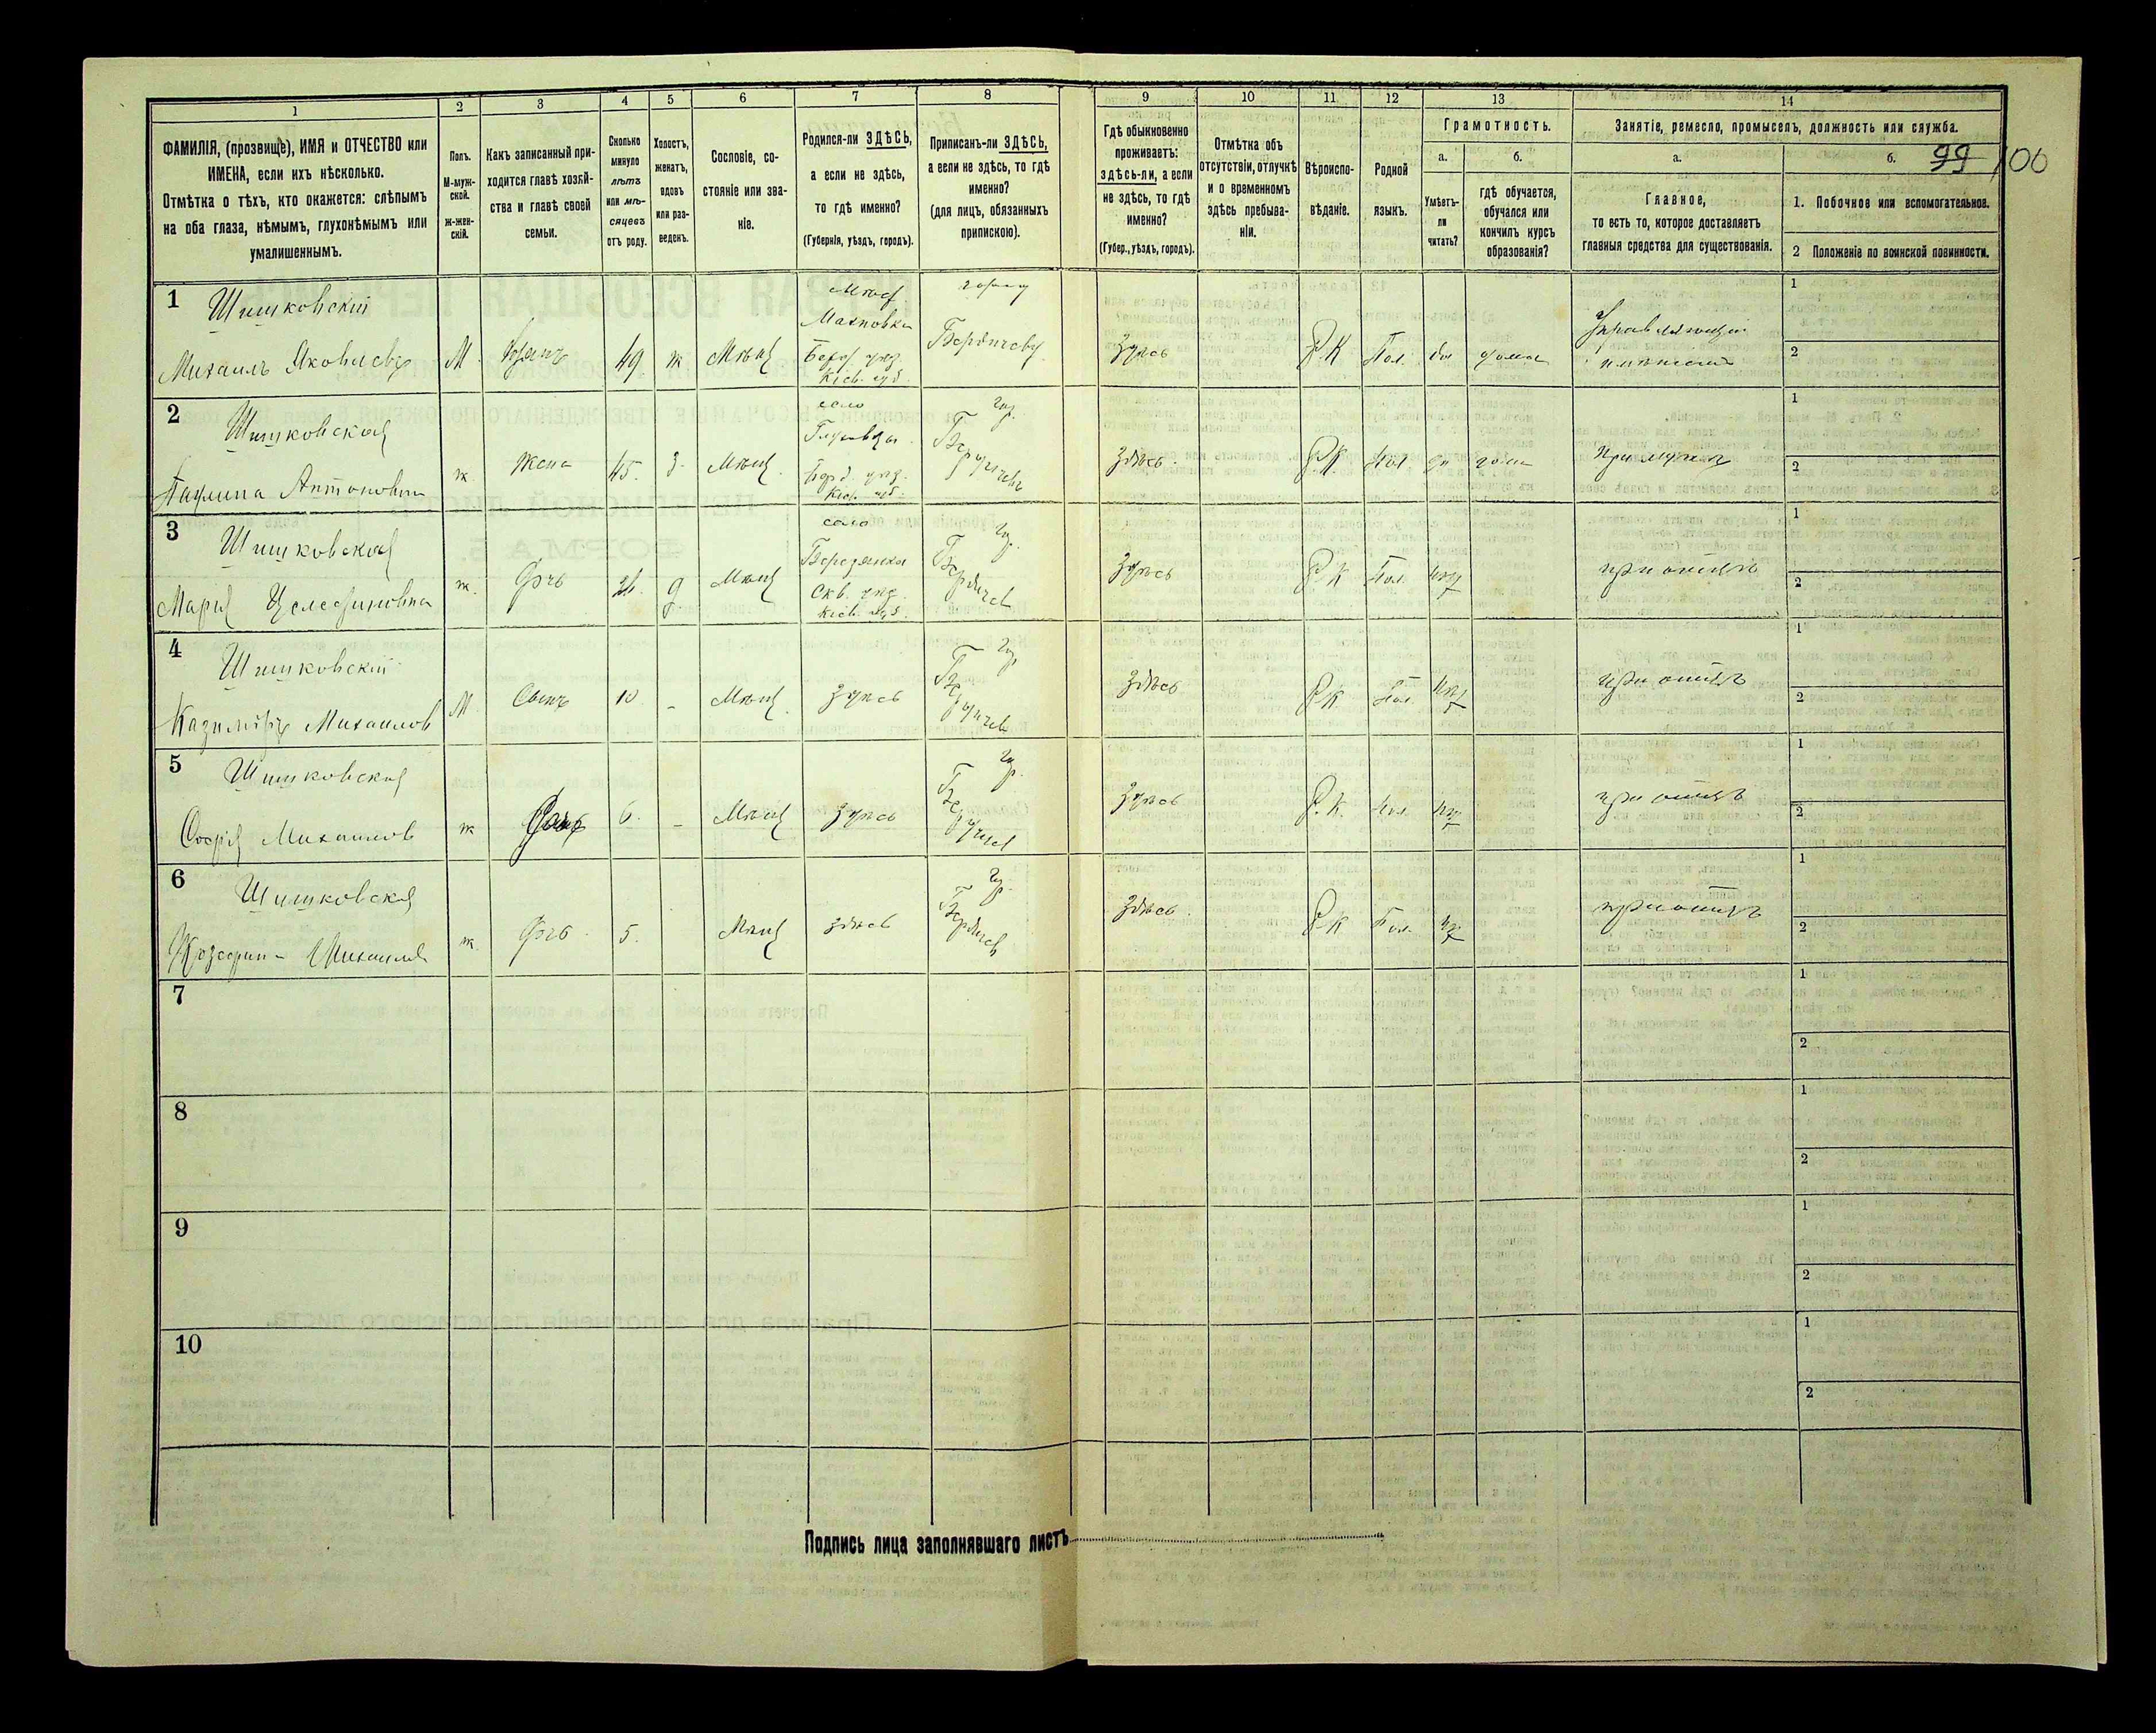 1 2 3 4 5 6 7 8 9 10 11 12 13 14
ФАМИЛІЯ, (прозвище), ИМЯ и ОТЧЕСТВО или
ИМЕНА, если ихъ нѣсколько.
Отмѣтка о тѣхъ, кто окажется: слѣпымъ
на оба глаза, нѣмымъ, глухонѣмымъ или
умалишеннымъ.
Полъ.
М-муж-
ской.
ж-жен-
скій.
Какъ записанный при-
ходится главѣ хозяй-
ства и главѣ своей
семьи.
Сколько
минуло
лѣтъ
или мѣ-
сяцевъ
отъ роду.
Холостъ,
женатъ,
вдовъ
или раз-
веденъ.
Сословіе, со-
стояніе или зва-
ніе.
Родился-ли ЗДѢСЬ,
а если не здѣсь,
то гдѣ именно?
(Губернія, уѣздъ, городъ).
Приписанъ-ли ЗДѢСЬ,
а если не здѣсь, то гдѣ
именно?
(для лицъ, обязанныхъ
припискою).
Гдѣ обыкновенно
проживаетъ:
здѣсь-ли, а если
не здѣсь, то гдѣ
именно?
(Губер., уѣздъ, городъ).
Отмѣтка объ
отсутствіи, отлучкѣ
и о временномъ
здѣсь пребыва-
ніи.
Вѣроиспо-
вѣданіе.
Родной
языкъ.
Грамотность.
а.
Умѣетъ-
ли
читать?
б.
гдѣ обучается,
обучался или
кончилъ курсъ
образованія?
Занятіе, ремесло, промыселъ, должность или служба.
а.
Главное,
то есть то, которое доставляетъ
главныя средства для существованія.
б.
99 100
1. Побочное или вспомогательное.
2 Положеніе по воинской повинности.
1
Шишковскій
Михаилъ Яковлевъ
М
49
ж
Мѣщ
Махновка
Берд. уѣзд.
Кіев. губ.
Бердичеву
Здѣсь
Р.К
Пол.
да
дома
Управляющій
имѣніемъ
1
2
2
Шишковская
Паулина Антоновна
ж
Жена
45.
з.
Мѣщ.
село
Берд. уѣзд.
Кіев. губ.
гор.
Бердичевъ
Здѣсь.
Р.К.
Пол
да
дома
При мужѣ
1
2
3
Шишковская
Марія Целестиновна
ж.
Дочь
д
Мѣщ
село
Скв. уѣзд.
Кіев. губ.
гор.
Бердичев
Здѣсь
Р.К
Пол.
нѣт
при отцѣ
1
2
4
Шишковскій
Казиміръ Михаилов
М
Сынъ
10
-
Мѣщ.
Здѣсь
гор.
Бердичев
Здѣсь
Р.К
Пол
нѣт
при отцѣ
1
2
5
Шишковская
Софія Михаилов
ж
Дочь
6.
-
Мѣщ
Здѣсь
гор.
Бердичев
Здѣсь
Р.К.
Пол.
нѣт
при отцѣ
1
2
6
Шишковская
Юзефин- Михаилов
ж.
Дочь
5.
Мѣщ
здѣсь
гор.
Бердичев
Здѣсь.
Р.К
Пол.
нѣт
при отцѣ
1
2
7
1
2
8
1
2
9
1
2
10
1
2
Подпись лица заполнявшаго листъ